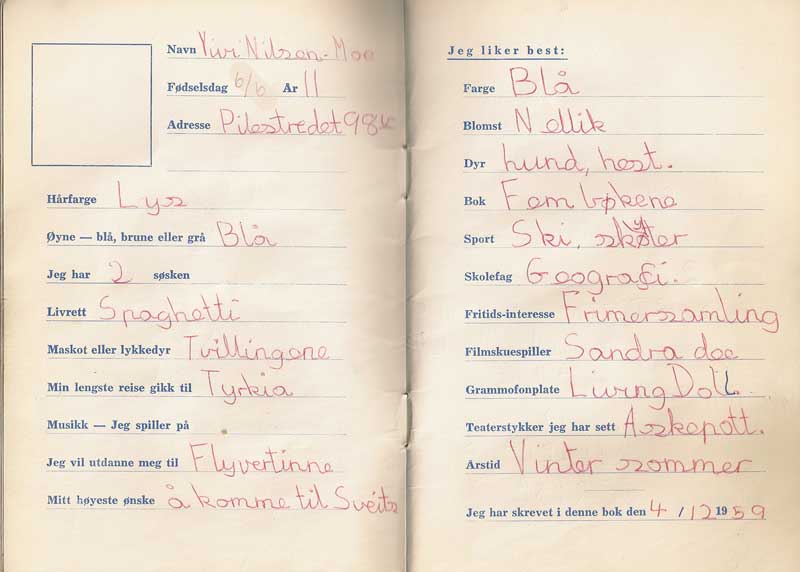 Navn Vivi Nilsen-Moe
Fødselsdag 6/6 År 11
Adresse Pilestredet 98
Hårfarge Lys
Øyne — blå, brune eller grå Blå
Jeg har 2 søsken
Livrett Spaghetti
Maskot eller lykkedyr Tvillingene
Min lengste reise gikk til Tyrkia
Musikk — Jeg spiller på
Jeg vil utdanne meg til Flyvertinne
Mitt høyeste ønske å komme til Sveits
Jeg liker best:
Farge Blå
Blomst Nellik
Dyr hund, hest.
Bok Fem bøkene
Sport Ski, skøyter
Skolefag Geografi.
Fritids-interesse Frimersamling
Filmskuespiller Sandra dee
Grammofonplate Living Doll
Teaterstykker jeg har sett Askepott.
Årstid Vinter sommer
Jeg har skrevet i denne bok den 4 / 12 1959